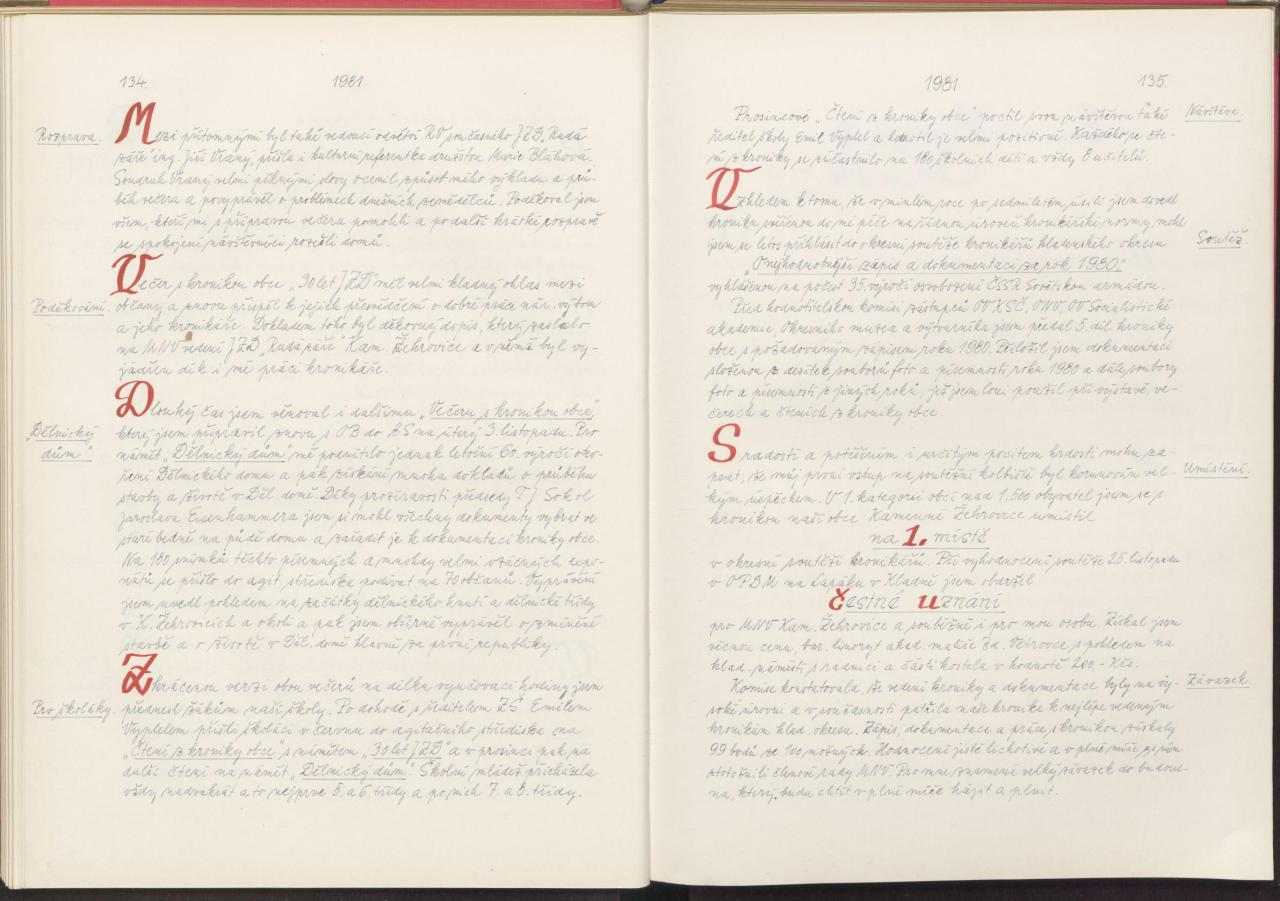 134.
1981
Rozprava.
Mezi přítomnými byl také vedoucí odvětví RV současného JZD „Rudá
záře" ing. Jiří Vraný, přišla i kulturní referentka družstva Marie Bláhová.
Soudruh Vraný velmi pěknými slovy ocenil způsob mého výkladu a prů-
běh večera a povyprávěl o problémech dnešních zemědělců. Poděkoval jsem
všem, kteří mi s přípravou večera pomohli a po další krátké rozpravě
se spokojení návštěvníci rozešli domů.
Poděkování.
Večer s kronikou obce „30 let JZD" měl velmi kladný ohlas mezi
občany a znovu přispěl k jejich přesvědčení o dobré práci nár. výboru
a jeho kronikáře. Dokladem toho byl děkovný dopis, který zaslalo
na MNV vedení JZD „Rudá záře" Kam. Žehrovice a v němž byl vy-
jádřen dík i mé práci kronikáře.
„Dělnický
dům"
Dlouhý čas jsem věnoval i dalšímu „Večeru s kronikou obce,"
který jsem připravil znovu s OB do AS na úterý 3. listopadu. Pro
námět „Dělnický dům" mě podnítilo jednak letošní 60. výročí ote-
vření Dělnického domu a pak získání mnoha dokladů o průběhu
stavby a životě v Děl. domě. Díky prozíravosti předsedy TJ Sokol
Jaroslava Eisenhammera jsem si mohl všechny dokumenty vybrat ve
staré bedně na půdě domu a zařadit je k dokumentaci kroniky obce.
Na 180 snímků těchto písemných a mnohdy velmi vzácných expo-
nátů se přišlo do agit. střediska podívat na 70 občanů. Vyprávění
jsem uvedl pohledem na začátky dělnického hnutí a dělnické třídy
v K. Žehrovicích a okolí a pak jsem obšírně vyprávěl o zmíněné
stavbě a o životě v Děl. domě hlavně za první republiky.
Pro školáky.
Zkrácenou verzi obou večerů na délku vyučovací hodiny jsem
přednesl žákům naší školy. Po dohodě s ředitelem ZŠ Emilem
Vyplelem přišli školáci v červnu do agitačního střediska na
„Čtení z kroniky obce" s námětem „30 let JZD" a v prosinci pak na
další čtení na námět „Dělnický dům". Školní mládež přicházela
vždy nadvakrát a to nejprve 5. a 6. třídy a po nich 7. a 8. třídy.
1981
135.
Návštěva.
Prosincové „Čtení z kroniky obce" poctil svou návštěvou také
ředitel školy Emil Vyplel a hodnotil je velmi pozitivně. Každého ze čte-
ní z kroniky se zúčastnilo na 180 školních dětí a vždy 8 učitelů.
Soutěž.
Vzhledem k tomu, že v minulém roce po sedmiletém úsilí jsem dovedl
kroniku svěřenou do mé péče na řádnou úroveň kronikářské normy, mohl
jsem se letos přihlásit do okresní soutěže kronikářů kladenského okresu
„O nejhodnotnější zápis a dokumentaci za rok 1980,"
vyhlášenou na počest 35. výročí osvobození ČSSR Sovětskou armádou.
Před hodnotitelskou komisi zástupců OV KSČ, ONV, OV Socialistické
akademie, Okresního muzea a výtvarníka jsem předal 5. díl kroniky
obce s požadovaným zápisem roku 1980. Přiložil jsem dokumentaci
složenou z desítek souborů foto a písemností roku 1980 a dále soubory
foto a písemností z jiných roků, jež jsem loni použil při výstavě, ve-
čerech a čteních z kroniky obce.
Umístění.
S radostí a potěšením i určitým pocitem hrdosti mohu za-
psat, že můj první vstup na soutěžní kolbiště byl korunován vel-
kým úspěchem. V 1. kategorii obcí nad 1.500 obyvatel jsem se s
kronikou naší obce Kamenné Žehrovice umístil
na 1. místě
v okresní soutěži kronikářů. Při vyhodnocení soutěže 25. listopadu
v OPDM na Lapáku v Kladně jsem obdržel
čestné uznání
pro MNV Kam. Žehrovice a souběžně i pro mou osobu. Získal jsem
věcnou cenu, bar. linoryt akad. malíře Zd. Votrovce s pohledem na
klad. náměstí s radnicí a částí kostela v hodnotě 200,- Kčs.
Závazek.
Komise konstatovala, že vedení kroniky a dokumentace byly na vy-
soké úrovni a v současnosti patřila naše kronika k nejlépe vedeným
kronikám klad. okresu. Zápis, dokumentace a práce s kronikou získaly
99 bodů ze 100 možných. Hodnocení jistě lichotivé a v plné míře se s ním
ztotožnili členové rady MNV. Pro mne znamená velký závazek do budou-
na, který budu chtít v plné míře hájit a plnit.